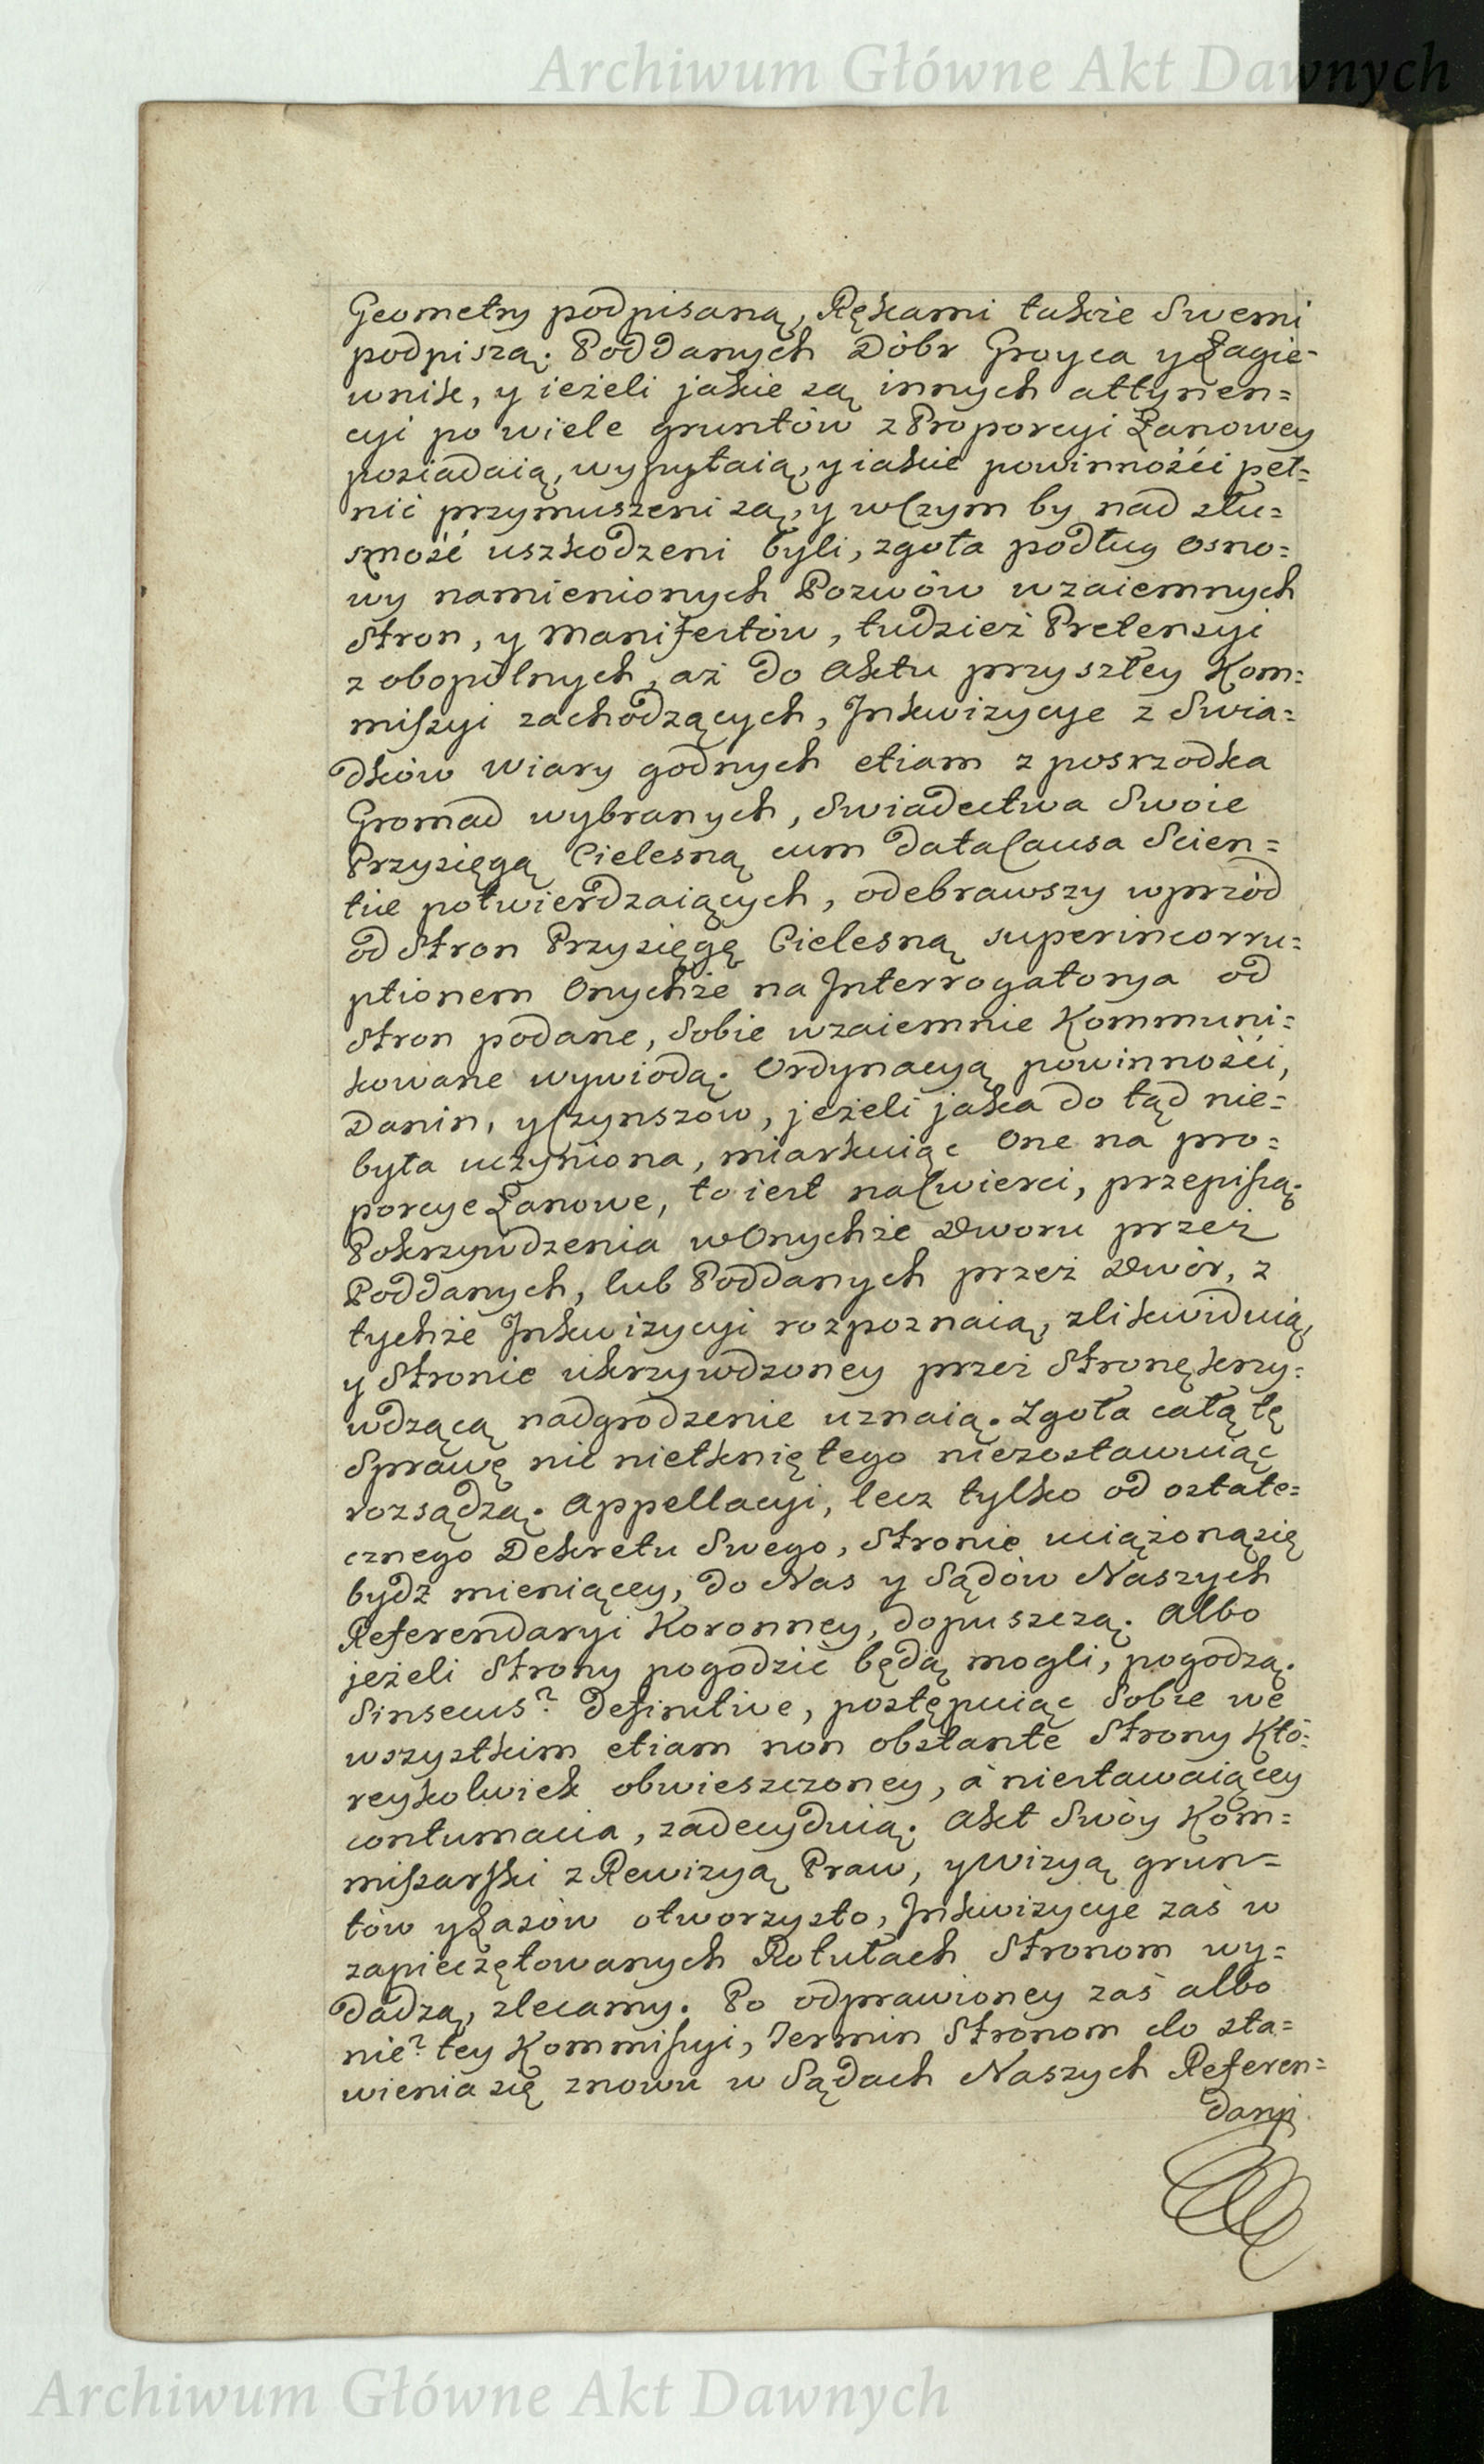 Archiwum Główne Akt Dawnych
Geometry podpisaną, Rękami także Swemi
podpiszą. Poddanych Dóbr Groyca y Łagie=
wnik, y ieżeli jakie są innych attynen=
cyi po wiele gruntów z Proporcyi Łanowey
posiadaią, wypytaią, y iakie powinnośći peł=
nić przymuszeni są, y w Czym by nad słu=
szność uszkodzeni byli, zgoła podług osno=
wy namienionych Pozwów wzaiemnych
Stron, y Manifestów, tudzież Pretensyi
z obopólnych, aż do Aktu przyszłey Kom=
missyi zachodzących, Inkwizycye z Swia=
dków wiary godnych etiam z posrzodka
Gromad wybranych, Swiadectwa Swoie
Przysięgą Cielesną cum data Causa Scien=
tiæ potwierdzaiących, odebrawszy wprzód
od Stron Przysięgę Cielesną super incorru=
ptionem Onychże na Interrogatorya od
Stron podane, Sobie wzaiemnie Kommuni=
kowane wywiodą. Ordynacyą powinnośći,
Danin, y Czynszów, jeżeli jaka do tąd nie=
była uczyniona, miarkuiąc One na pro=
porcye Łanowe, to iest na Cwierci, przepiszą.
Pokrzywdzenia w Onychże Dworu przez
Poddanych, lub Poddanych przez Dwór, z
tychże Inkwizycyi rozpoznaią, zlikwiduią,
y Stronie ukrzywdzoney przez Stronę krzy=
wdzącą nadgrodzenie uznaią. Zgoła całą tę
Sprawę nic nietkniętego niezostawuiąc
rozsądzą. Appellacyi, lecz tylko od ostate=
cznego Dekretu Swego, Stronie uciążoną się
bydź mieniącey, do Nas y Sądów Naszych
Referendaryi Koronney, dopuszczą. Albo
jeżeli Strony pogodzić będą mogli, pogodzą.
Sinsecus? definitive, postępuiąc Sobie we
wszystkim etiam non obstante Strony Któ=
reykolwiek obwieszczoney, á niestawaiącey
contumacia, zadecyduią. Akt Swóy Kom=
missarski z Rewizyą Praw, y Wizyą grun=
tów y Lasów otworzysto, Inkwizycye zaś w
zapieczętowanych Rotułach Stronom wy=
dadzą, zlecamy. Po odprawioney zaś albo
nie? tey Kommissyi, Termin Stronom do sta=
wienia się znowu w Sądach Naszych Referen=
daryi
Archiwum Główne Akt Dawnych